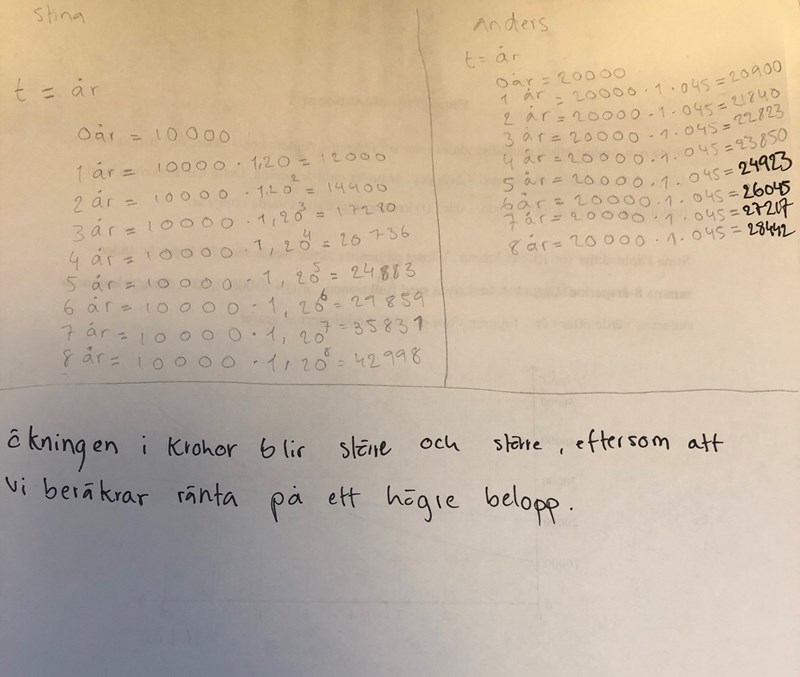 Stina
t = år
0år = 10000
1 år = 10000 · 1,20 = 12000
2 år = 10000 · 1,20² = 14400
3 år = 10000 · 1,20³ = 17280
4 år = 10000 · 1,20⁴ = 20736
5 år = 10000 · 1,20⁵ = 24883
6 år = 10000 · 1,20⁶ = 29859
7 år = 10000 · 1,20⁷ = 35831
8 år = 10000 · 1,20⁸ = 42998
Anders
t = år
0år = 20000
1 år = 20000 · 1.045 = 20900
2 år = 20000 · 1.045 = 21840
3 år = 20000 · 1.045 = 22823
4 år = 20000 · 1.045 = 23850
5 år = 20000 · 1.045 = 24923
6 år = 20000 · 1.045 = 26045
7 år = 20000 · 1.045 = 27217
8 år = 20000 · 1.045 = 28442
ökningen i Kronor blir större och större, eftersom att
vi beräknar ränta på ett högre belopp.